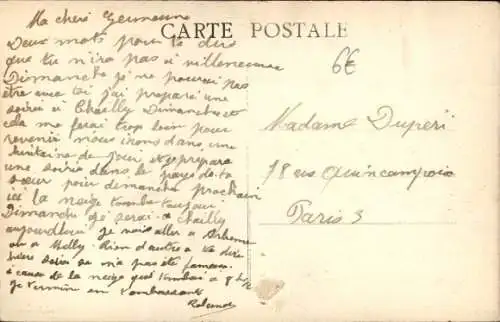 Ma chère Germaine
CARTE POSTALE
Deux mots pour te dire
que tu n'ira pas à villeneuve
Dimanche je ne pourrai pas
être avec toi j'ai préparé une
soirée à Chailly Dimanche et
cela me ferai trop loin pour
revenir nous irons dans une
huitaine de jour et je prépare
une soirée dans le pays de ta
sœur pour dimanche prochain
ici la neige tombe toujour
Dimanche je serai à Chailly
aujourdhui je vais aller a
ou a Milly. Rien d'autre a te dire
hière soir sa n'a pas été fameux
à cause de la neige qui tombai a 8 h
je termine en t'embrassant
Roland
6€
Madame Duperi
18 rue Quincampoix
Paris 3